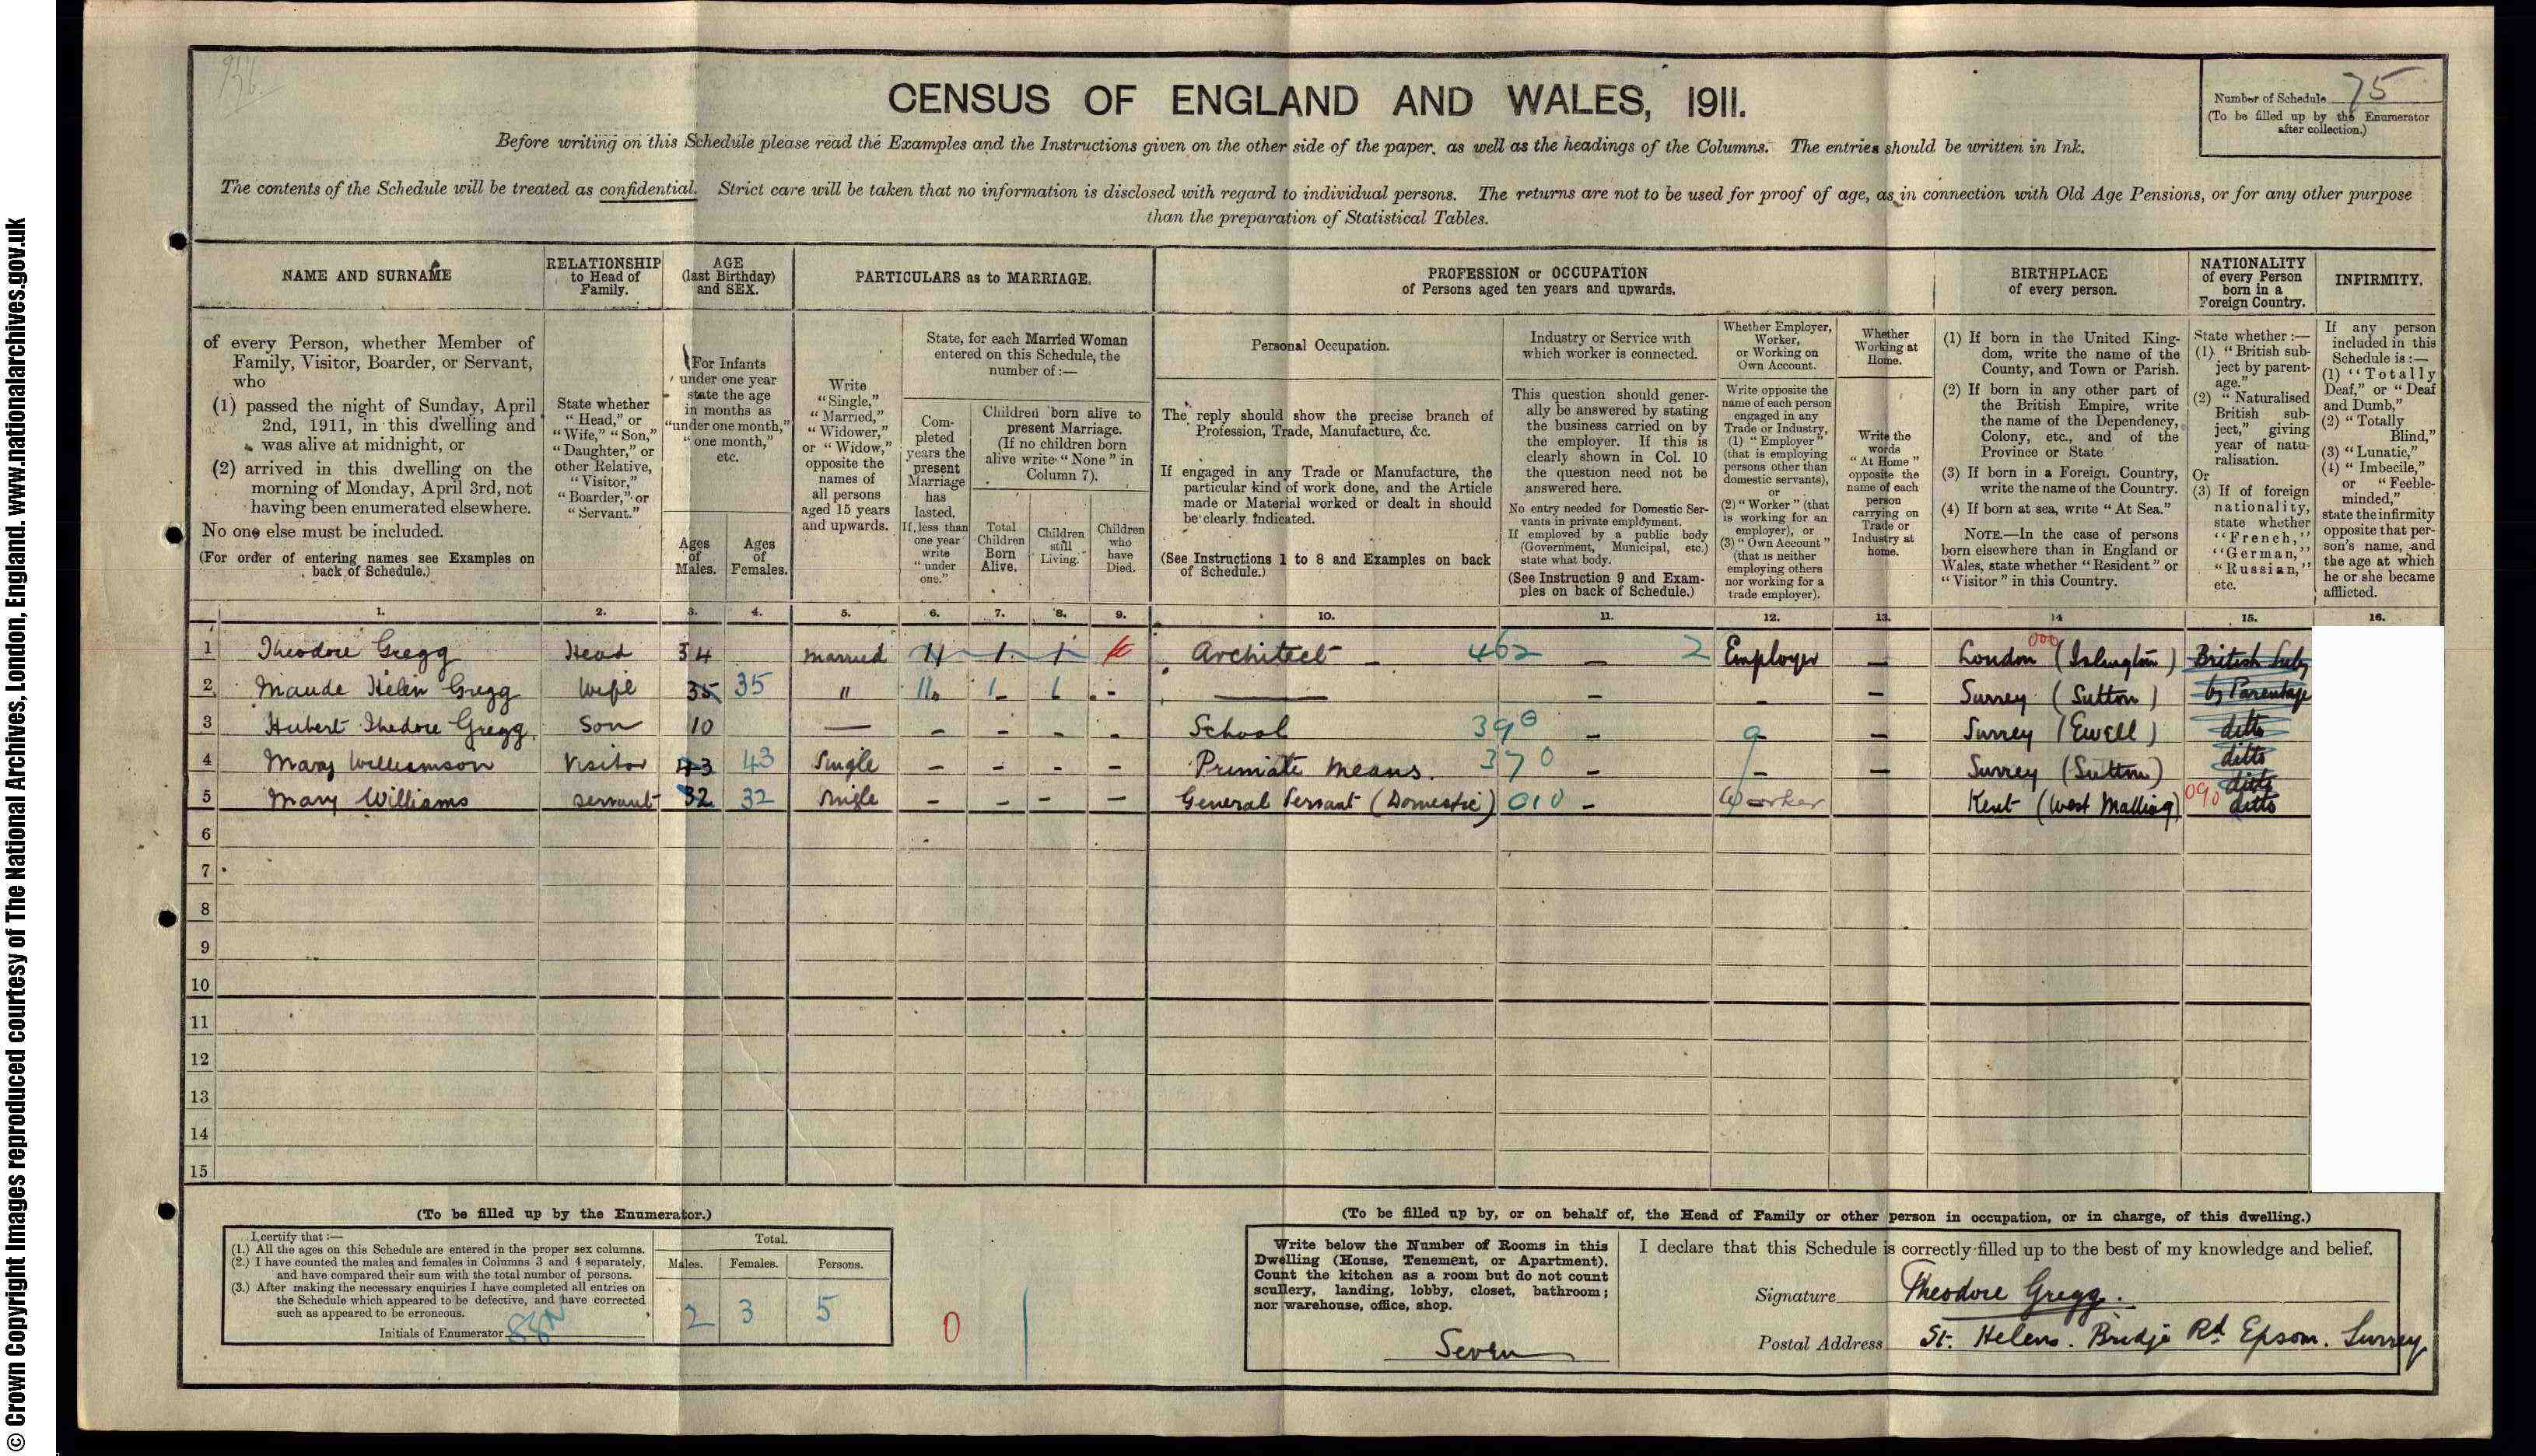 © Crown Copyright Images reproduced courtesy of The National Archives, London, England. www.nationalarchives.gov.uk
CENSUS OF ENGLAND AND WALES, 1911.
Number of Schedule 75
(To be filled up by the Enumerator after collection.)
Before writing on this Schedule please read the Examples and the Instructions given on the other side of the paper, as well as the headings of the Columns. The entries should be written in Ink.
The contents of the Schedule will be treated as confidential. Strict care will be taken that no information is disclosed with regard to individual persons. The returns are not to be used for proof of age, as in connection with Old Age Pensions, or for any other purpose
than the preparation of Statistical Tables.
NAME AND SURNAME
RELATIONSHIP to Head of Family.
AGE (last Birthday) and SEX.
PARTICULARS as to MARRIAGE.
PROFESSION or OCCUPATION of Persons aged ten years and upwards.
BIRTHPLACE of every person.
NATIONALITY of every Person born in a Foreign Country.
INFIRMITY.
of every Person, whether Member of Family, Visitor, Boarder, or Servant, who
(1) passed the night of Sunday, April 2nd, 1911, in this dwelling and was alive at midnight, or
(2) arrived in this dwelling on the morning of Monday, April 3rd, not having been enumerated elsewhere.
No one else must be included.
(For order of entering names see Examples on back of Schedule.)
State whether "Head," or "Wife," "Son," "Daughter," or other Relative, "Visitor," "Boarder," or "Servant."
For Infants under one year state the age in months as "under one month," "one month," etc.
Ages of Males.
Ages of Females.
Write "Single," "Married," "Widower," or "Widow," opposite the names of all persons aged 15 years and upwards.
State, for each Married Woman entered on this Schedule, the number of :—
Completed years the present Marriage has lasted. If less than one year write "under one."
Children born alive to present Marriage. (If no children born alive write "None" in Column 7).
Total Children Born Alive.
Children still Living.
Children who have Died.
Personal Occupation.
The reply should show the precise branch of Profession, Trade, Manufacture, &c.
If engaged in any Trade or Manufacture, the particular kind of work done, and the Article made or Material worked or dealt in should be clearly indicated.
(See Instructions 1 to 8 and Examples on back of Schedule.)
Industry or Service with which worker is connected.
This question should generally be answered by stating the business carried on by the employer. If this is clearly shown in Col. 10 the question need not be answered here.
No entry needed for Domestic Servants in private employment. If employed by a public body (Government, Municipal, etc.) state what body.
(See Instruction 9 and Examples on back of Schedule.)
Whether Employer, Worker, or Working on Own Account.
Write opposite the name of each person engaged in any Trade or Industry, (1) "Employer" (that is employing persons other than domestic servants), or (2) "Worker" (that is working for an employer), or (3) "Own Account" (that is neither employing others nor working for a trade employer).
Whether Working at Home.
Write the words "At Home" opposite the name of each person carrying on Trade or Industry at home.
(1) If born in the United Kingdom, write the name of the County, and Town or Parish.
(2) If born in any other part of the British Empire, write the name of the Dependency, Colony, etc., and of the Province or State
(3) If born in a Foreign Country, write the name of the Country.
(4) If born at sea, write "At Sea."
NOTE.—In the case of persons born elsewhere than in England or Wales, state whether "Resident" or "Visitor" in this Country.
State whether :—
(1) "British subject by parentage."
(2) "Naturalised British subject," giving year of naturalisation.
Or
(3) If of foreign nationality, state whether "French," "German," "Russian," etc.
If any person included in this Schedule is :—
(1) "Totally Deaf," or "Deaf and Dumb,"
(2) "Totally Blind,"
(3) "Lunatic,"
(4) "Imbecile," or "Feeble-minded,"
state the infirmity opposite that person's name, and the age at which he or she became afflicted.
1. 2. 3. 4. 5. 6. 7. 8. 9. 10. 11. 12. 13. 14 15. 16.
1 Theodore Gregg Head 34 Married 11 1 1 Architect — 462 — 2 Employer — London (Islington) 000 British Subj
2 Maude Helen Gregg Wife 35 35 " 11 1 1 - — — - — Surrey (Sutton) by Parentage
3 Hubert Theodore Gregg. Son 10 — - - - - School 390 — 9 — Surrey (Ewell) ditto
4 Mary Williamson Visitor 43 43 Single - - - - Private means. 370 — - — Surrey (Sutton) ditto
5 Mary Williams Servant 32 32 Single - - - - General Servant (Domestic) 010 - Worker Kent (West Malling) 090 ditto ditto
6
7
8
9
10
11
12
13
14
15
(To be filled up by the Enumerator.)
I certify that :—
(1.) All the ages on this Schedule are entered in the proper sex columns.
(2.) I have counted the males and females in Columns 3 and 4 separately, and have compared their sum with the total number of persons.
(3.) After making the necessary enquiries I have completed all entries on the Schedule which appeared to be defective, and have corrected such as appeared to be erroneous.
Initials of Enumerator
Total.
Males. Females. Persons.
2 3 5
0
(To be filled up by, or on behalf of, the Head of Family or other person in occupation, or in charge, of this dwelling.)
Write below the Number of Rooms in this Dwelling (House, Tenement, or Apartment). Count the kitchen as a room but do not count scullery, landing, lobby, closet, bathroom; nor warehouse, office, shop.
Seven
I declare that this Schedule is correctly filled up to the best of my knowledge and belief.
Signature Theodore Gregg.
Postal Address St. Helens. Bridge Rd Epsom. Surrey